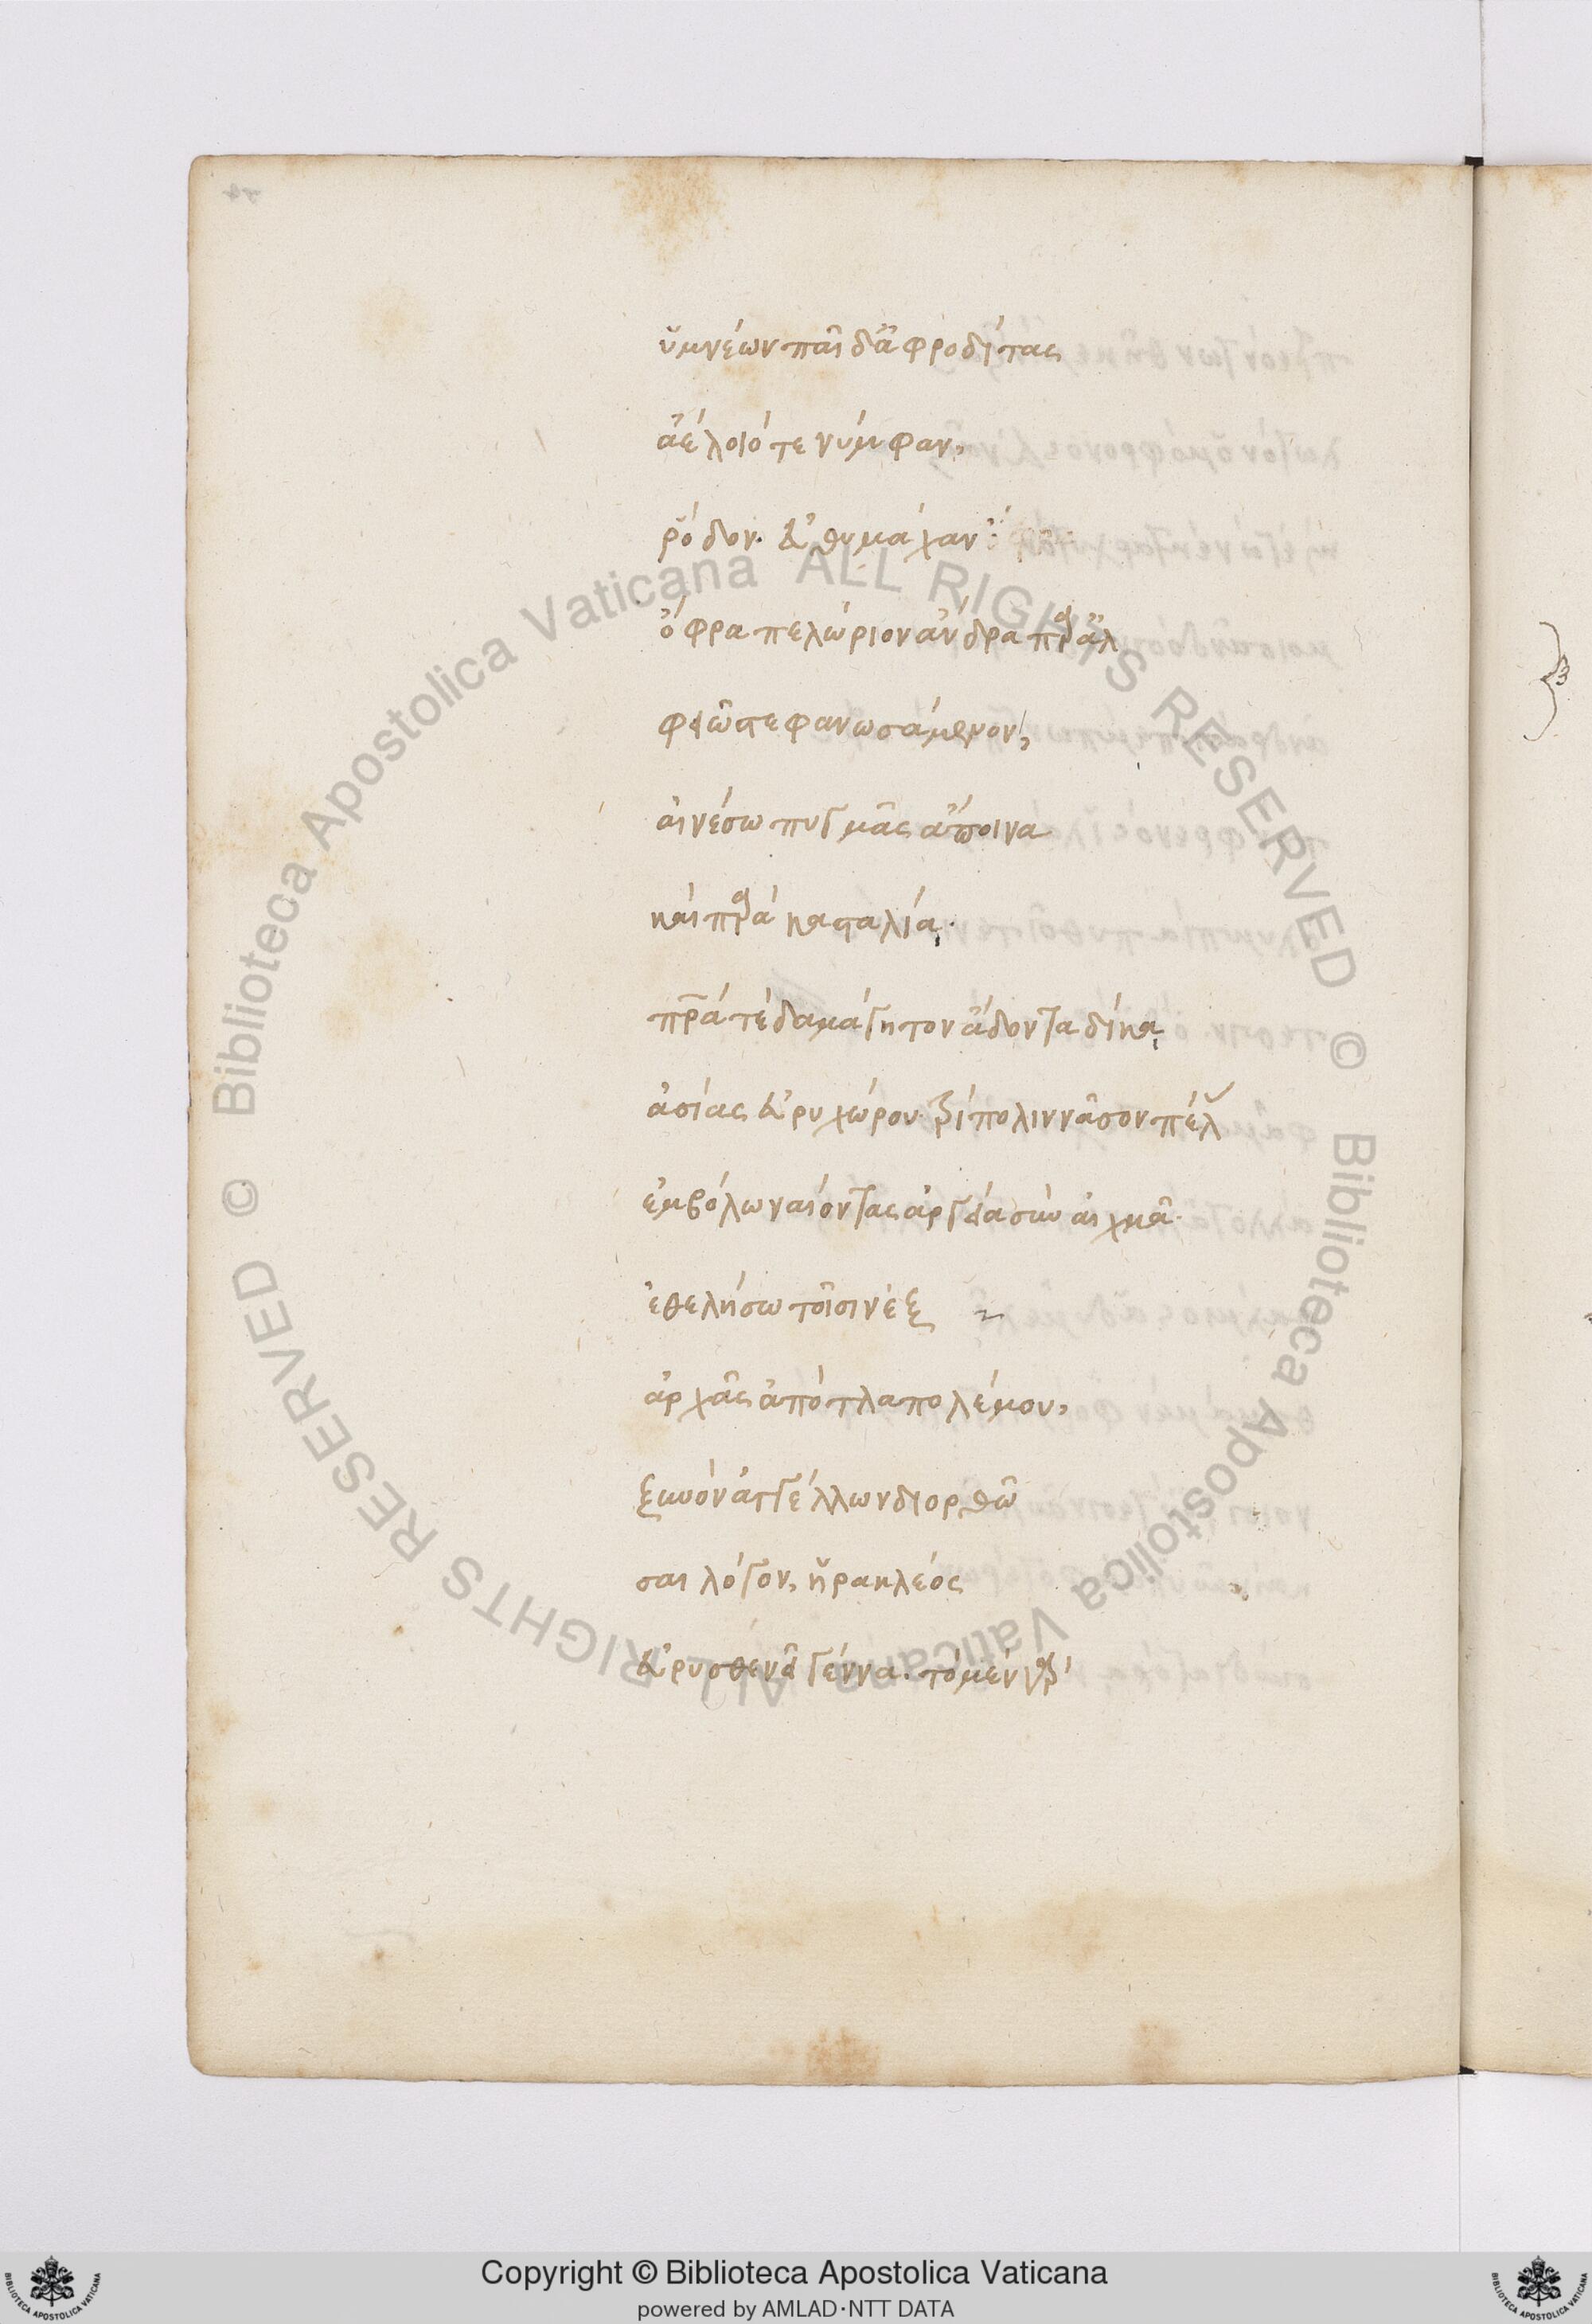 ὑμνέων παῖδ' ἀφροδίτας
ἀελίοιό τε νύμφαν,
ῥόδον. εὐθυμάχαν
ὄφρα πελώριον ἄνδρα παρ' ἀλ
φειῶ στεφανωσάμενον,
αἰνέσω πυγμᾶς ἄποινα
καὶ παρὰ κασταλία.
πρά τε δαμάγητον ἁδόντα δίκα
ἀσίας εὐρυχώρου τρίπολιν νᾶσον πέλ
ἐμβόλω ναίοντας ἀργεία σὺν αἰχμᾶ.
ἐθελήσω τοῖσιν ἐξ
ἀρχᾶς ἀπὸ τλαπολέμου,
ξυνὸν ἀγγέλλων διορθῶ
σαι λόγον, ἡρακλέος
εὐρυσθενεῖ γέννα. τὸ μὲν γὰρ
Copyright © Biblioteca Apostolica Vaticana
powered by AMLAD·NTT DATA
© Biblioteca Apostolica Vaticana ALL RIGHTS RESERVED
© Biblioteca Apostolica Vaticana ALL RIGHTS RESERVED